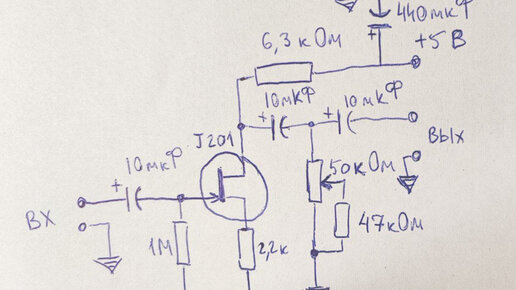 440мкФ
+
+5 В
6,3 кОм
10мкФ
+
10мкФ
+
J201
ВЫХ
10мкФ
+
50кОм
ВХ
1М
2,2к
47кОм